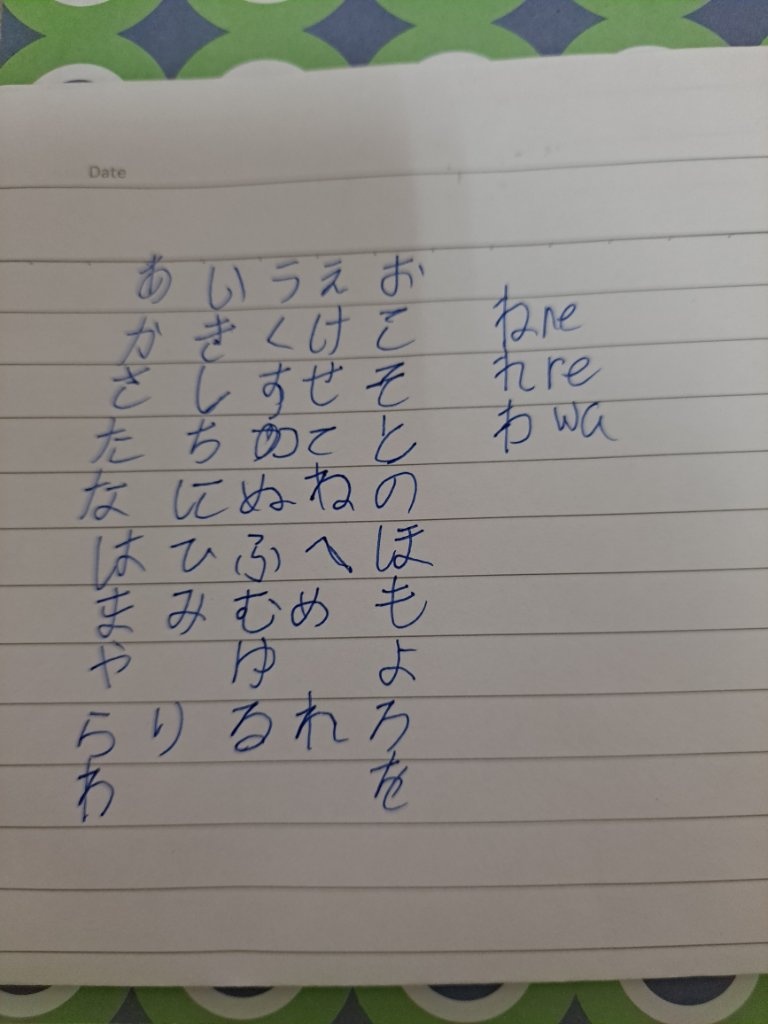 Date
あ い う え お
か き く け こ
さ し す せ そ
た ち て と
な に ぬ ね の
は ひ ふ へ ほ
ま み む め も
や ゆ よ
ら り る れ ろ
わ を
ね ne
れ re
わ wa